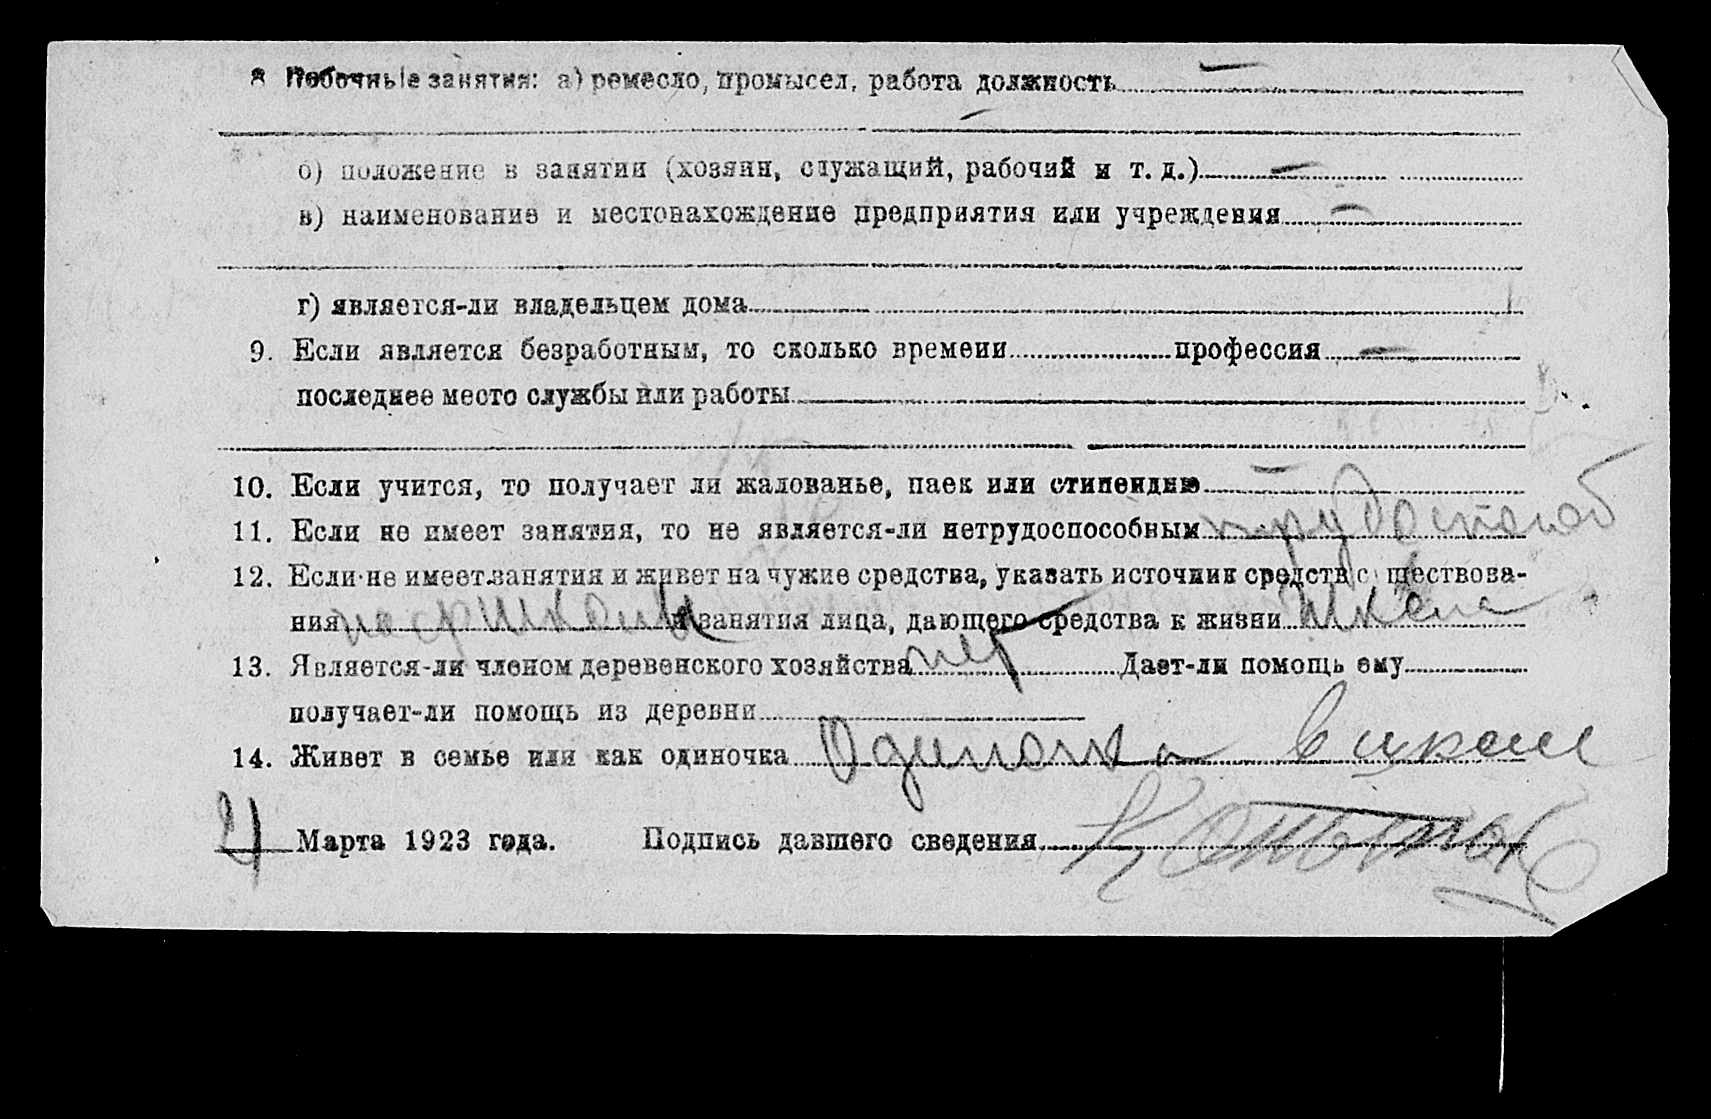 8 Побочные занятия: а) ремесло, промысел, работа должность
б) положение в занятии (хозяин, служащий, рабочий и т. д.)
в) наименование и местонахождение предприятия или учреждения
г) является-ли владельцем дома
9. Если является безработным, то сколько времени профессия
последнее место службы или работы
10. Если учится, то получает ли жалованье, паек или стипендию
11. Если не имеет занятия, то не является-ли нетрудоспособным трудоспособ
12. Если не имеет занятия и живет на чужие средства, указать источник средств существова-
ния и занятия лица, дающего средства к жизни
13. Является-ли членом деревенского хозяйства нет Дает-ли помощь ему
получает-ли помощь из деревни
14. Живет в семье или как одиночка Одиночка в школе
Марта 1923 года. Подпись давшего сведения